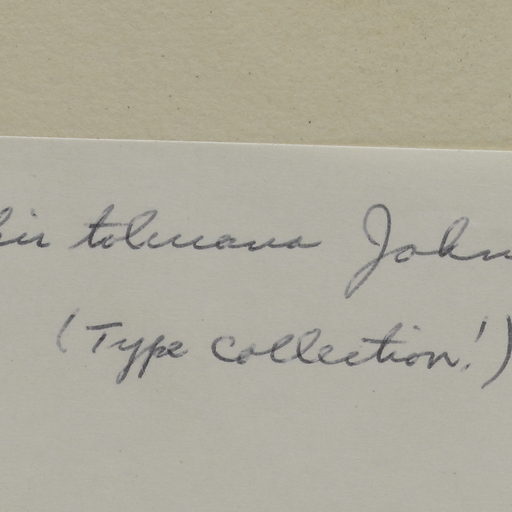 tolucana John
(Type collection!)